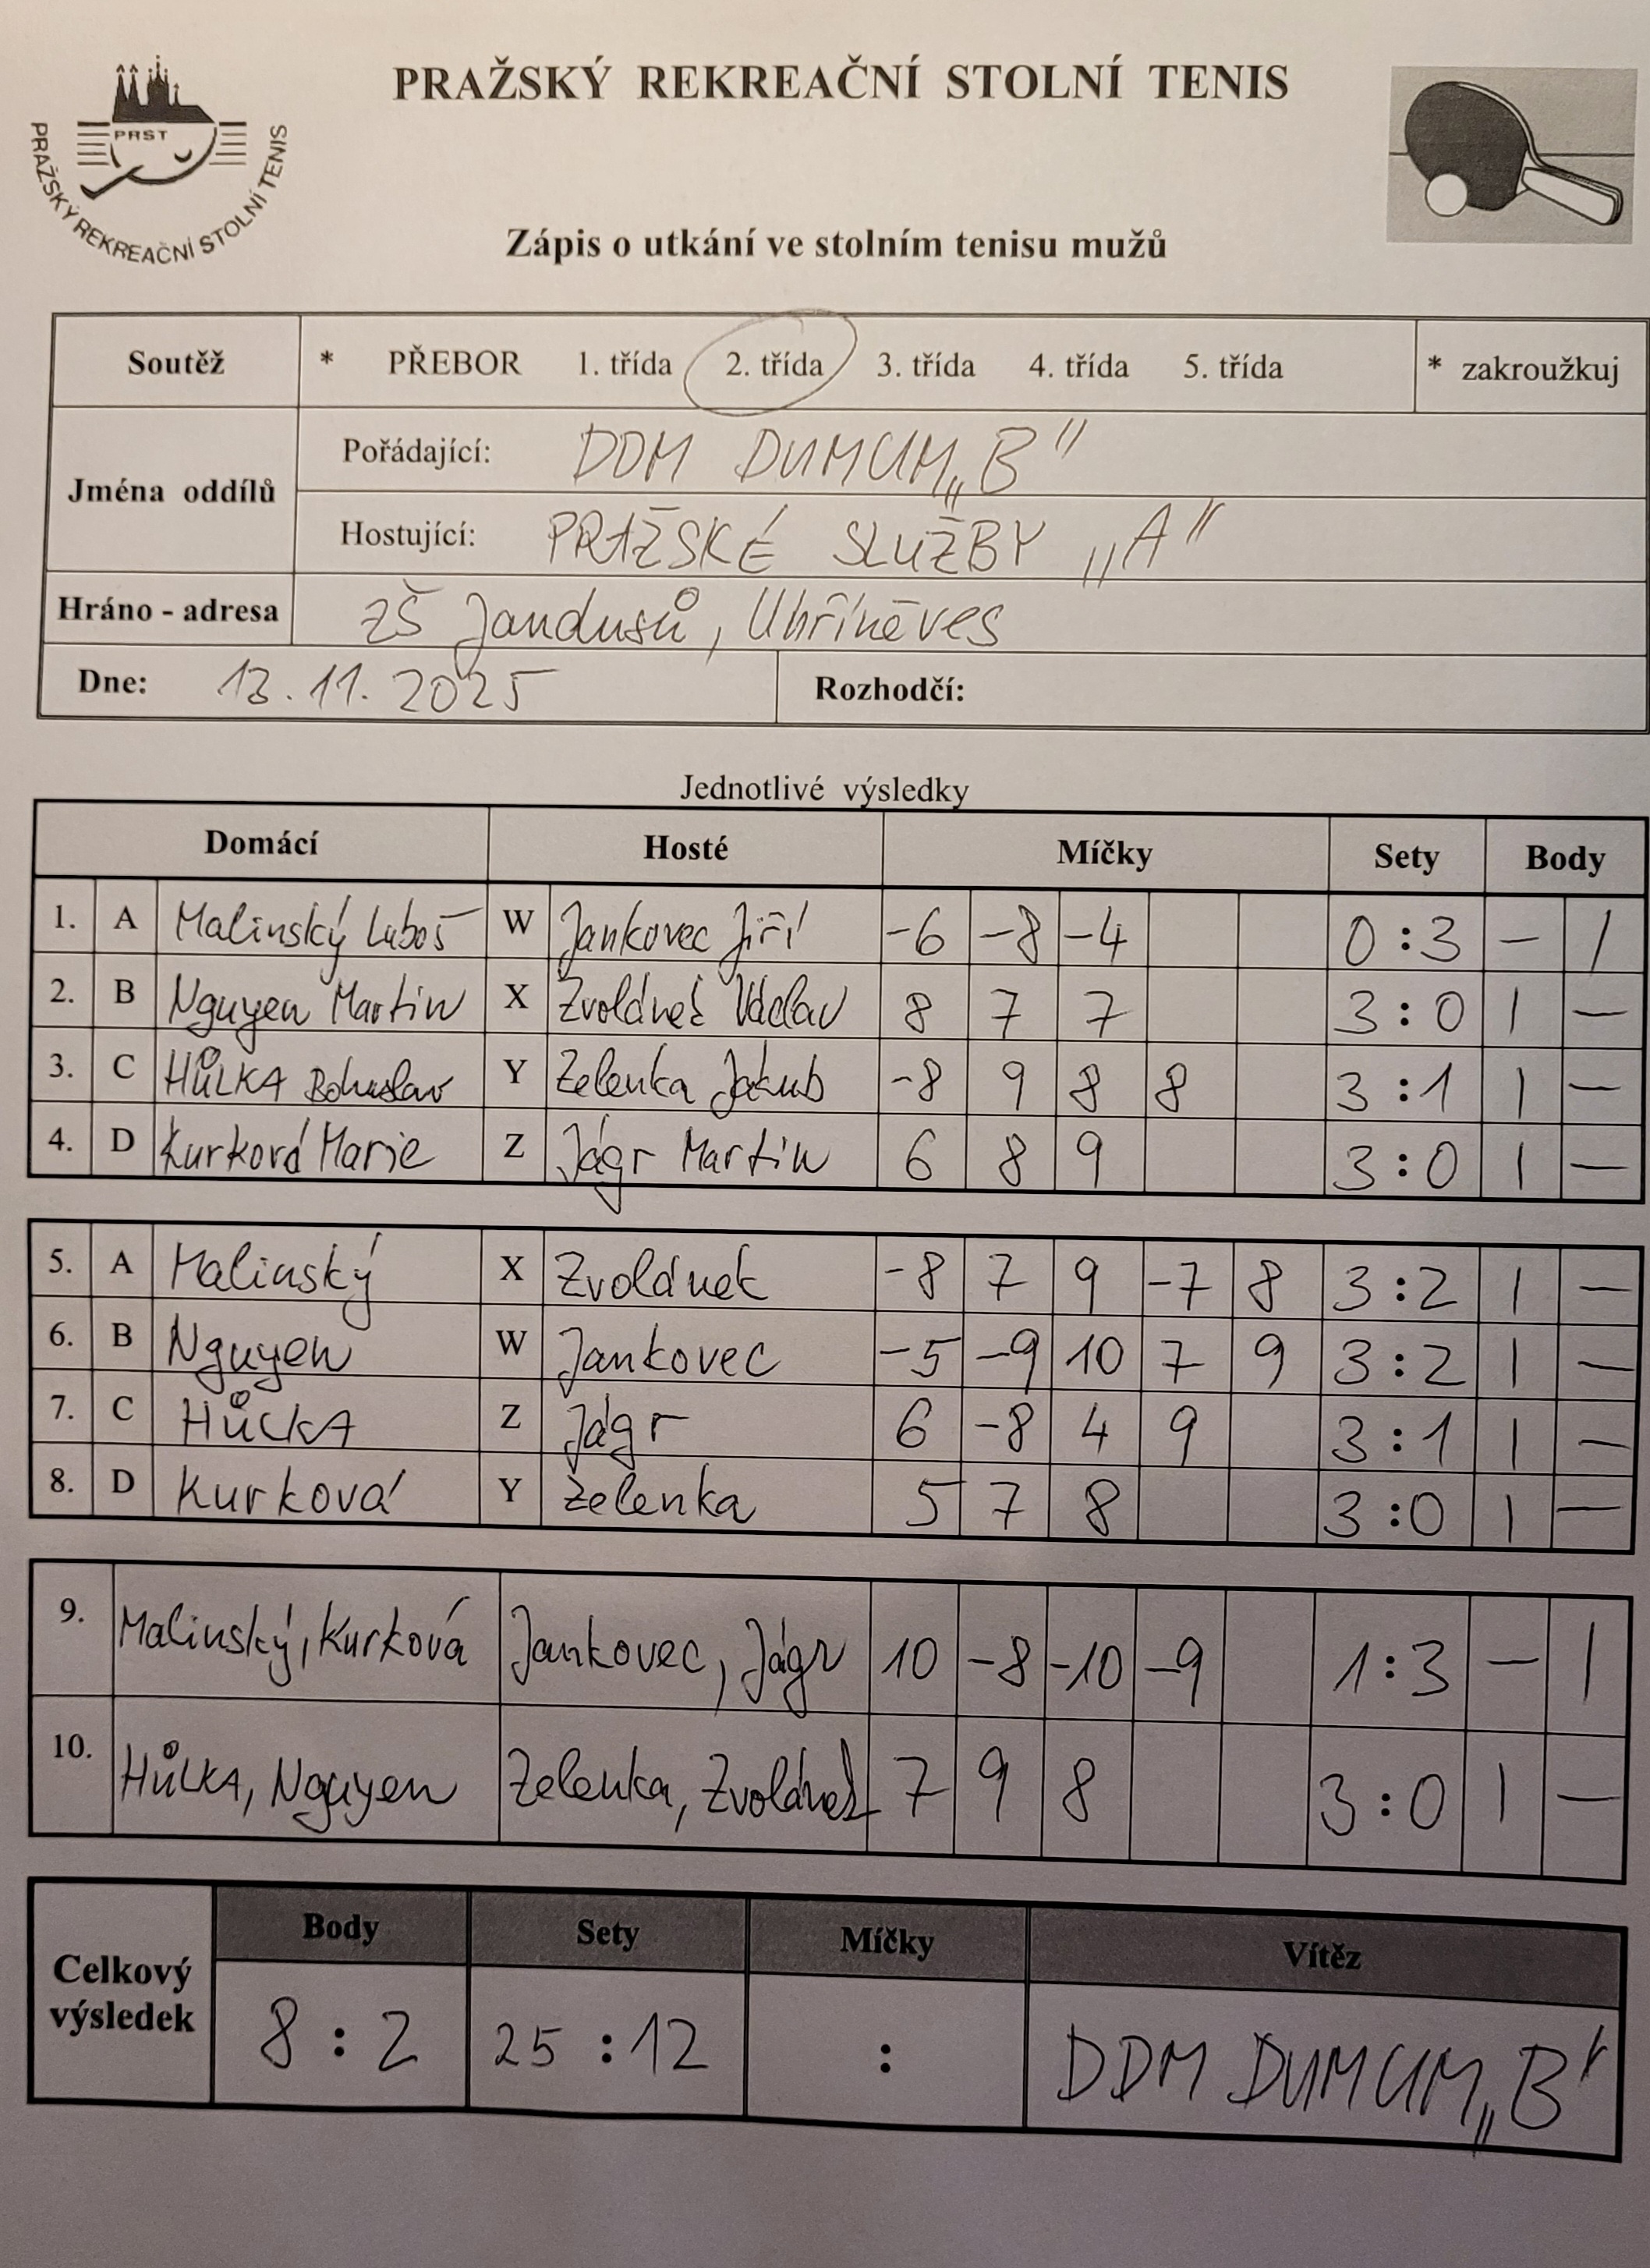 PRAŽSKÝ REKREAČNÍ STOLNÍ TENIS
PRST
PRAŽSKÝ REKREAČNÍ STOLNÍ TENIS
Zápis o utkání ve stolním tenisu mužů
Soutěž * PŘEBOR 1. třída 2. třída 3. třída 4. třída 5. třída * zakroužkuj
Jména oddílů
Pořádající: DDM DUMUM „B"
Hostující: PRAŽSKÉ SLUŽBY „A"
Hráno - adresa ZŠ Jandusů, Uhříněves
Dne: 13.11.2025 Rozhodčí:
Jednotlivé výsledky
Domácí Hosté Míčky Sety Body
1. A Malinský Luboš W Jankovec Jiří -6 -8 -4 0:3 - 1
2. B Nguyen Martin X Zvolánek Václav 8 7 7 3:0 1 -
3. C HŮLKA Bohuslav Y Zelenka Jakub -8 9 8 8 3:1 1 -
4. D Kurková Marie Z Jágr Martin 6 8 9 3:0 1 -
5. A Malinský X Zvolánek -8 7 9 -7 8 3:2 1 -
6. B Nguyen W Jankovec -5 -9 10 7 9 3:2 1 -
7. C HŮLKA Z Jágr 6 -8 4 9 3:1 1 -
8. D Kurková Y Zelenka 5 7 8 3:0 1 -
9. Malinský, Kurková Jankovec, Jágr 10 -8 -10 -9 1:3 - 1
10. HŮLKA, Nguyen Zelenka, Zvolánek 7 9 8 3:0 1 -
Celkový výsledek
Body Sety Míčky Vítěz
8:2 25:12 : DDM DUMUM „B"